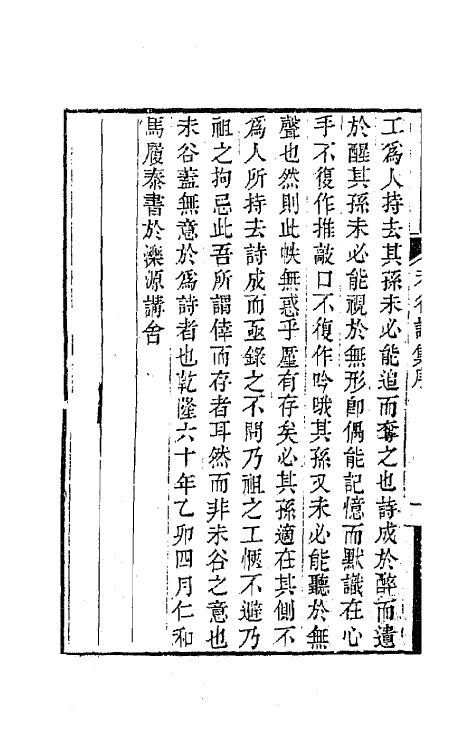 未谷詩集序
一
工爲人持去其孫未必能追而奪之也詩成於醉而遺
於醒其孫未必能視於無形卽偶能記憶而默識在心
手不復作推敲口不復作吟哦其孫又未必能聽於無
聲也然則此帙無惑乎廑有存矣必其孫適在其側不
爲人所持去詩成而亟錄之不問乃祖之工愜不避乃
祖之拘忌此吾所謂倖而存者耳然而非未谷之意也
未谷蓋無意於爲詩者也乾隆六十年乙卯四月仁和
馬履泰書於濼源講舍